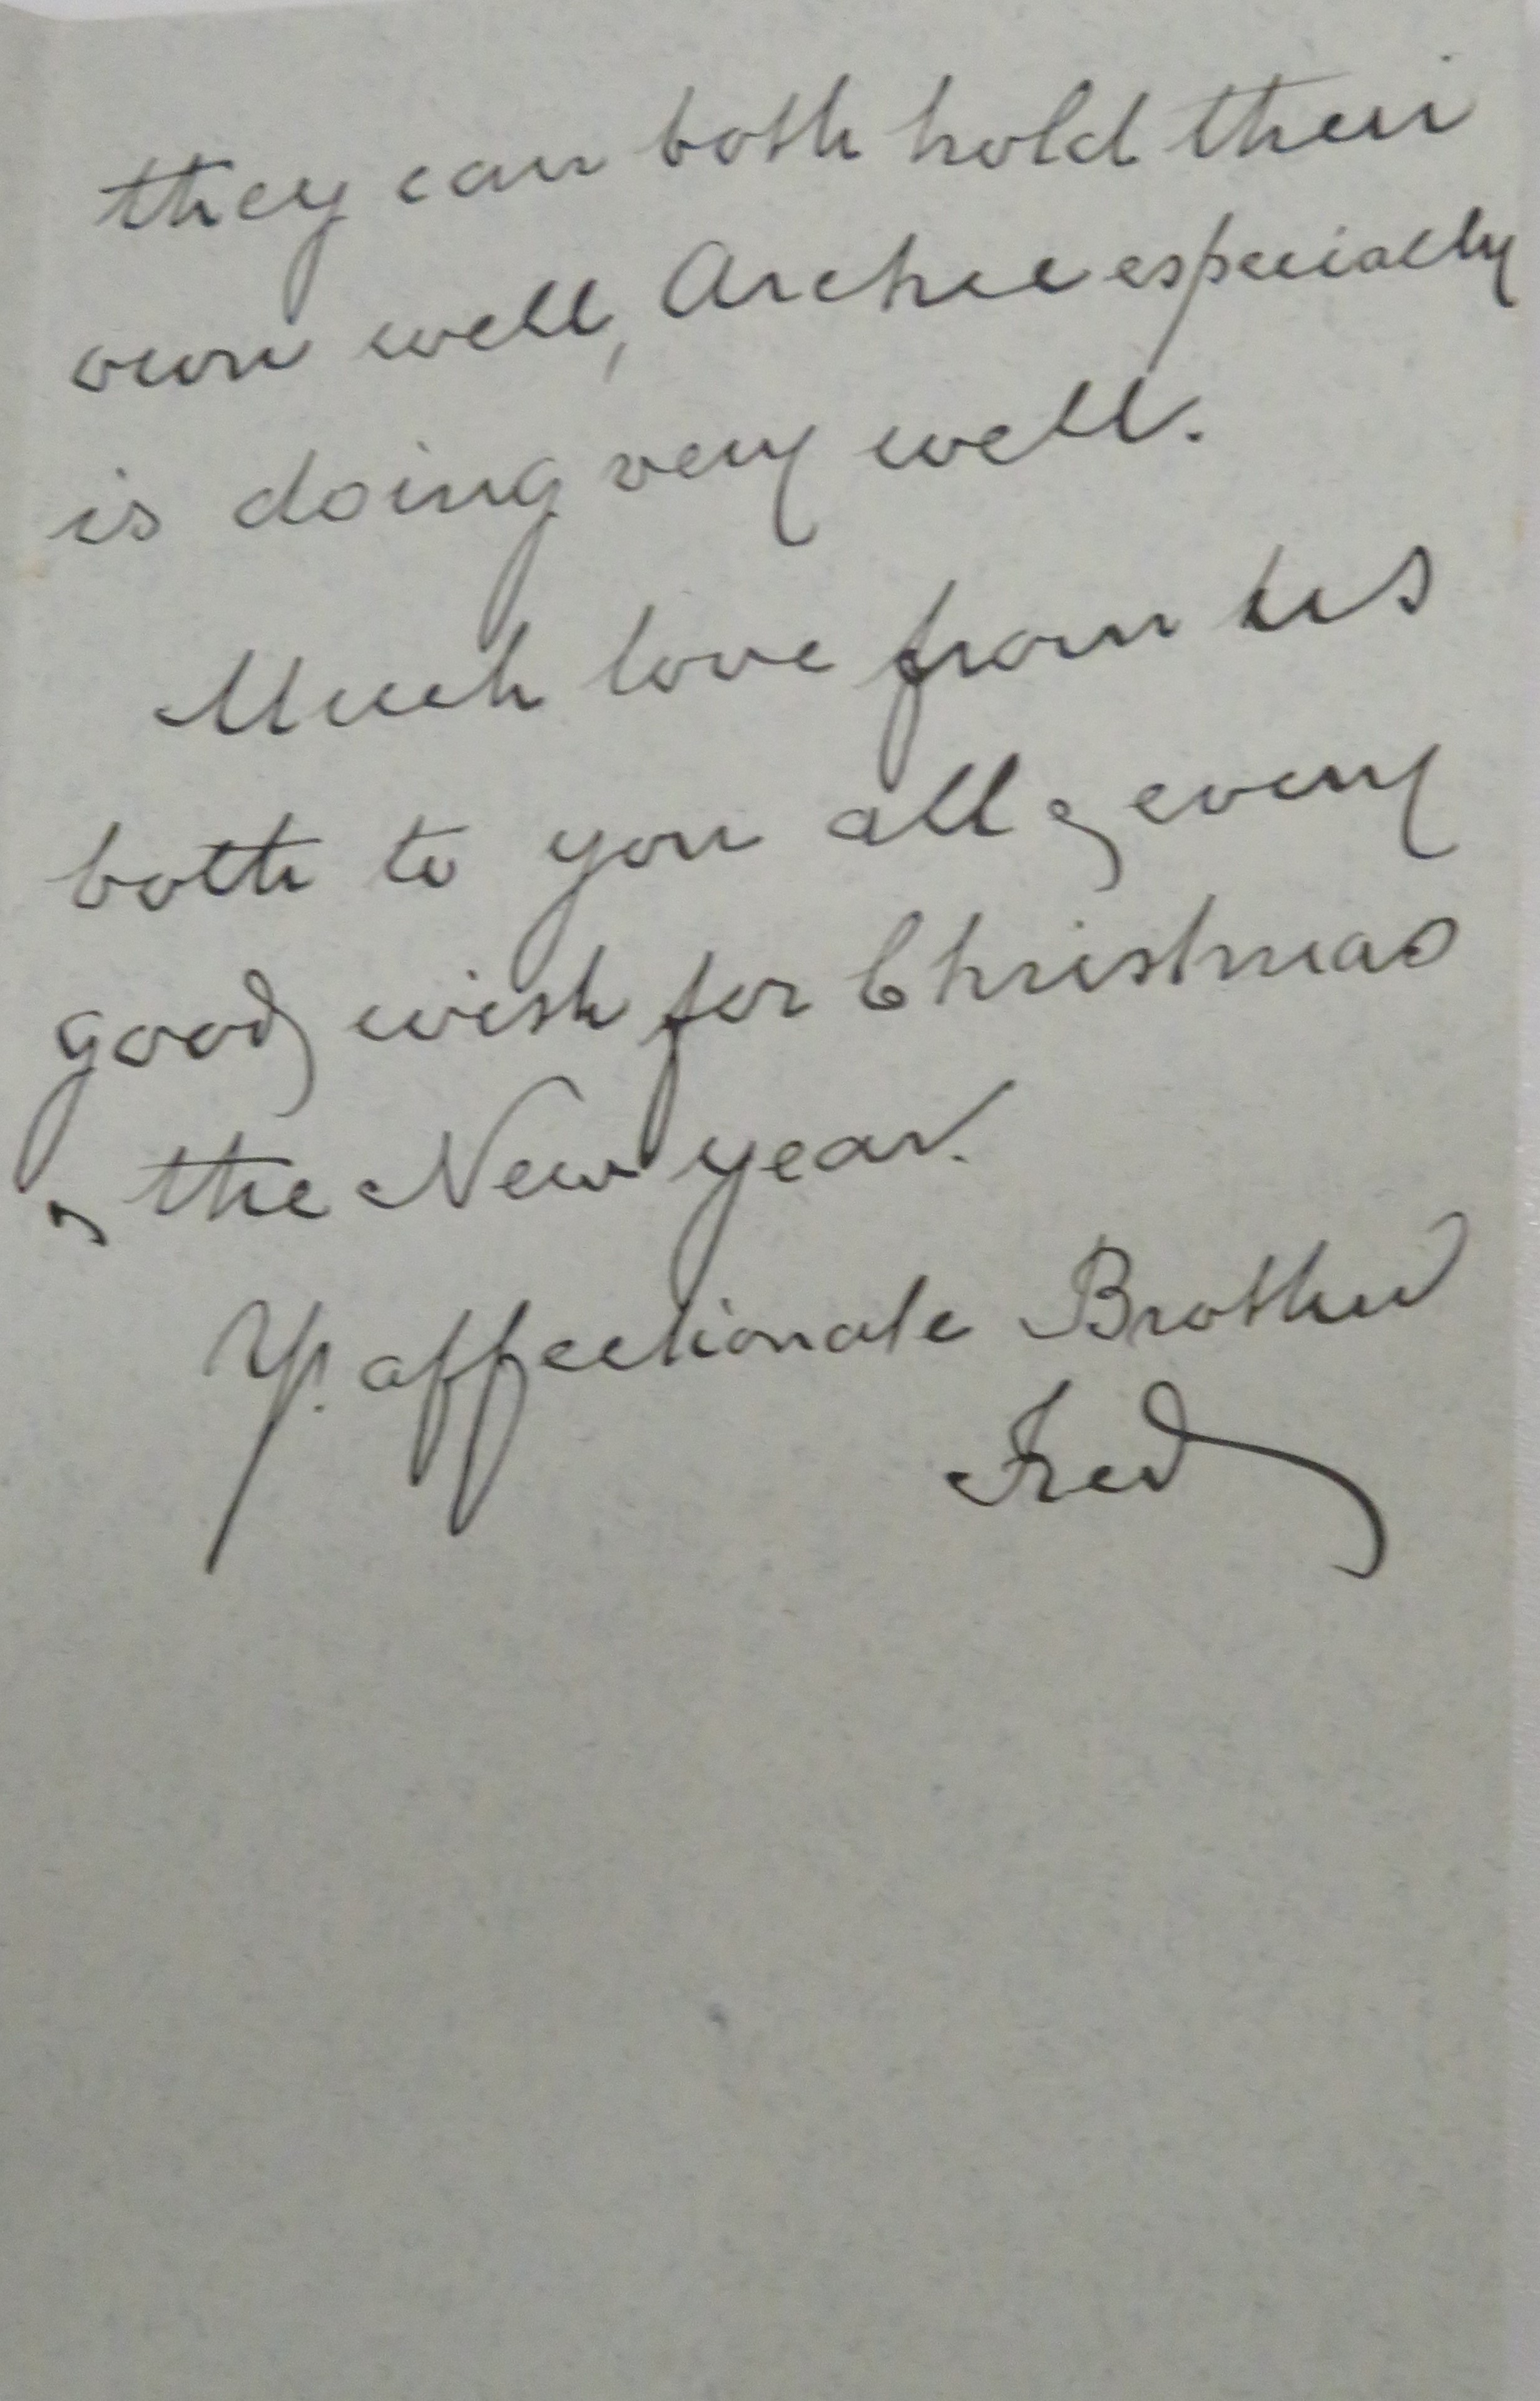 they can both hold their
own well, Archie especially
is doing very well.
Much love from us
both to you all & every
good wish for Christmas
& the New year.
Yr. affectionate Brother
Fred